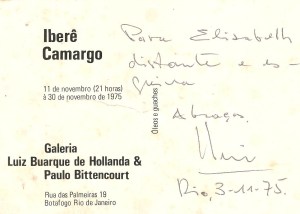 Iberê
Camargo
11 de novembro (21 horas)
à 30 de novembro de 1975
Galeria
Luiz Buarque de Hollanda &
Paulo Bittencourt
Rua das Palmeiras 19
Botafogo Rio de Janeiro
Óleos e guaches
Para Elisabeth
distante e es-
quiva
Abraços,
Rio, 3-11-75.